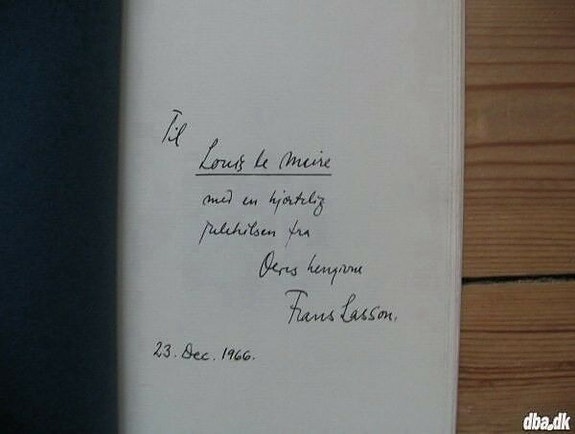 Til
Louis le Maire
med en hjertelig
julehilsen fra
Deres hengivne
Frans Lasson.
23. Dec. 1966.
dba.dk